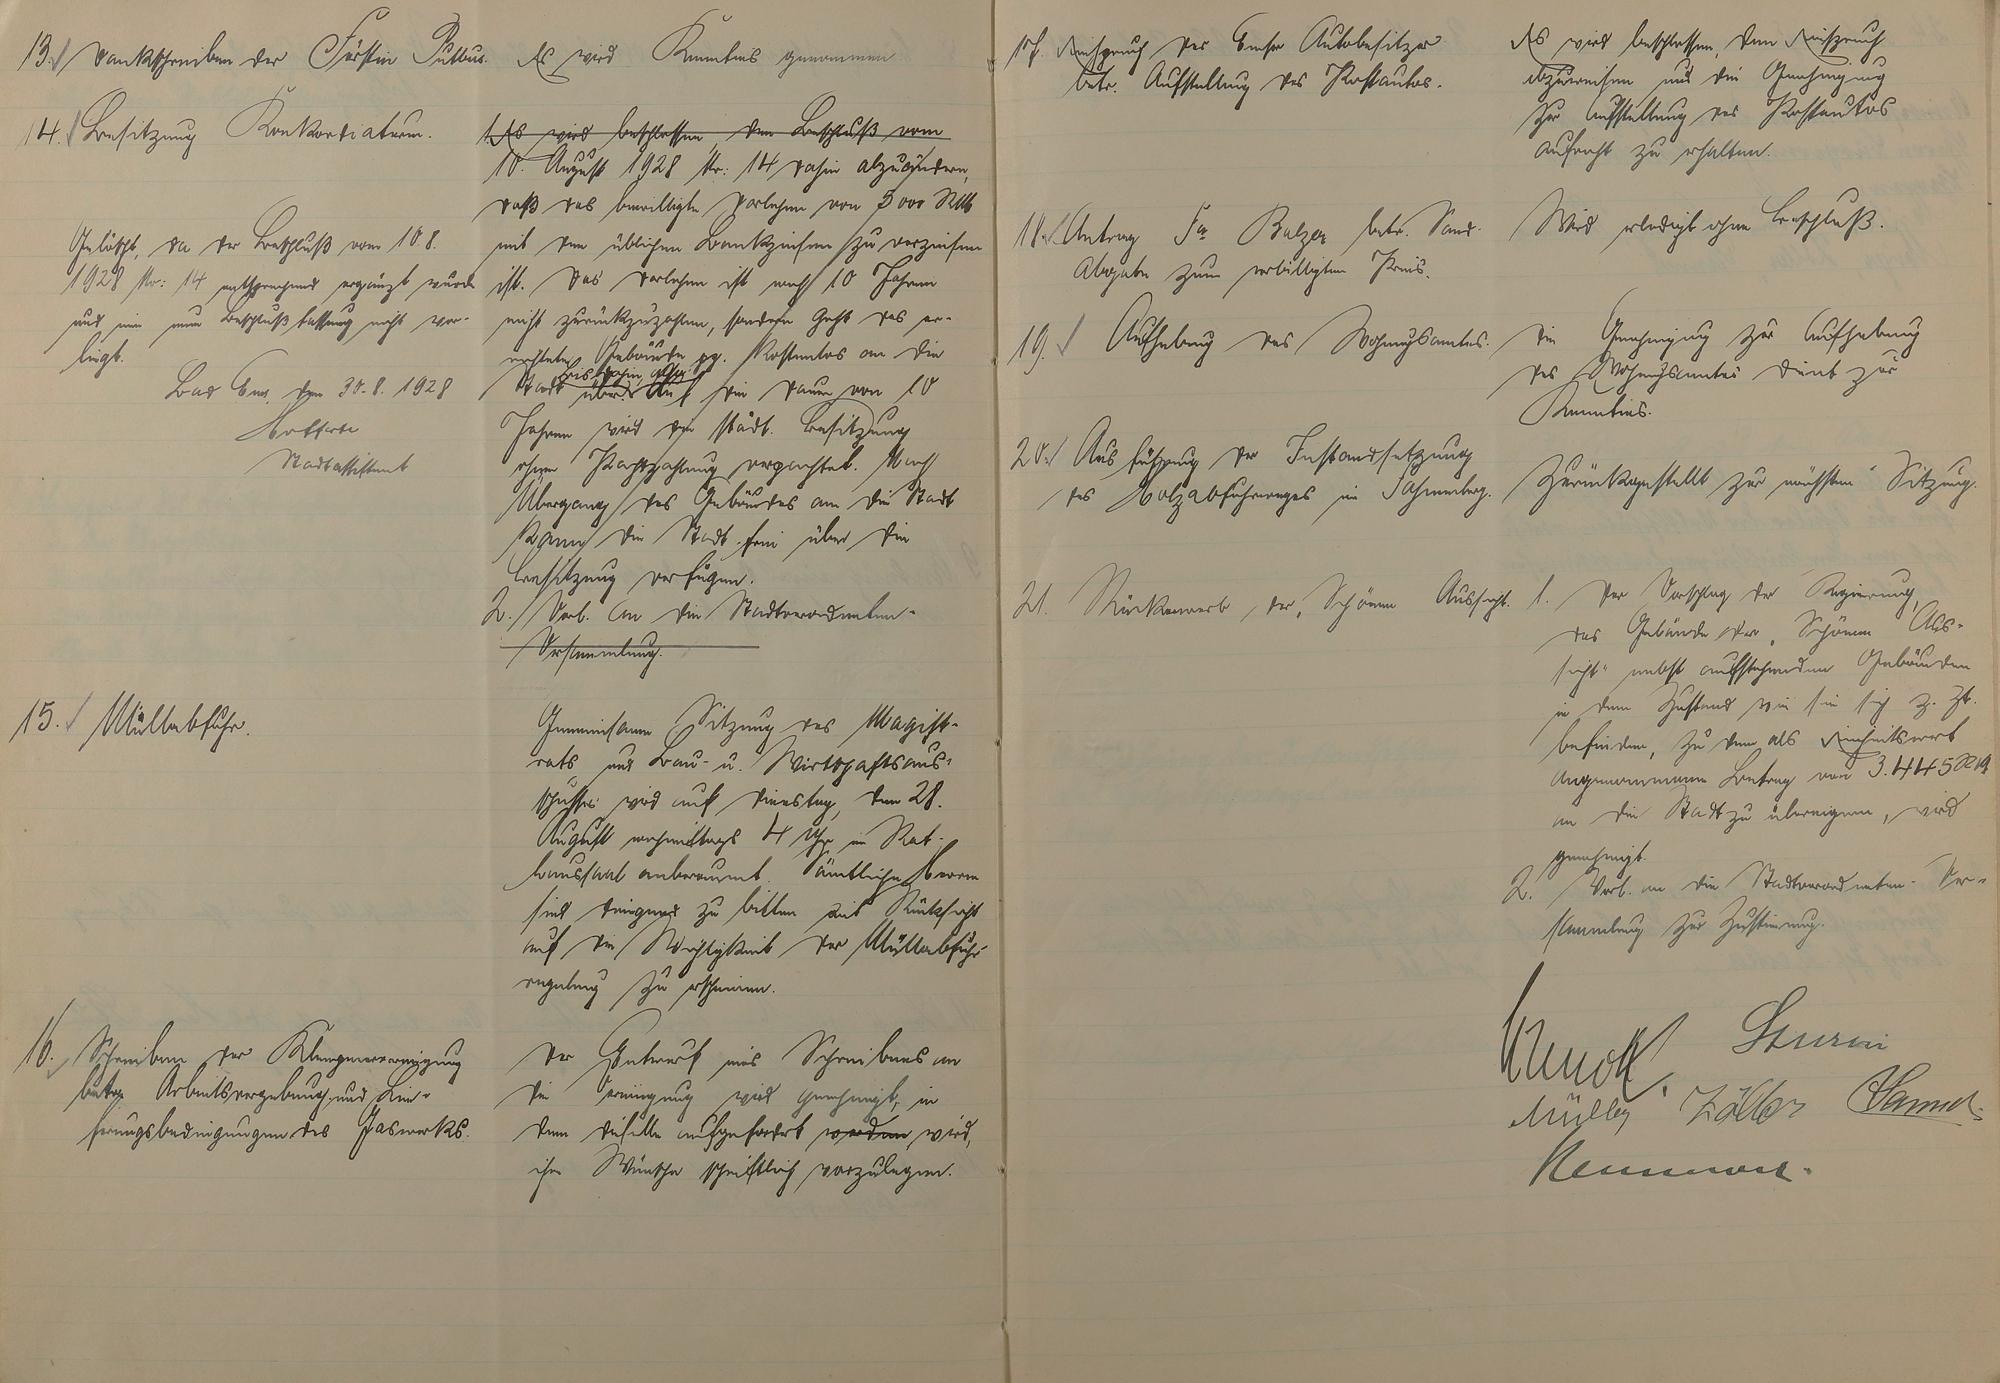 13. Dankschreiben der Fürstin Putbus.
Es wird Kenntnis genommen
14. Besitzung Konkordiaturm.
1. Es wird beschlossen, den Beschluß vom
10. August 1928 Nr: 14 dahin abzuändern,
daß das bewilligte Darlehen von 5000 RM
mit den üblichen Bankzinsen zu verzinsen
ist. Das Darlehen ist nach 10 Jahren
nicht zurückzuzahlen, sondern geht das er-
richtete Gebäude pp. kostenlos an die
Stadt über. Auf die Dauer von 10
Jahren wird die städt. Besitzung
ohne Pachtzahlung verpachtet. Nach
Übergang des Gebäudes an die Stadt
kann die Stadt frei über die
Besitzung verfügen.
2. Vorl. an die Stadtverordneten-
Versammlung.
Gelöscht, da der Beschluß vom 10.8.
1928 Nr: 14 entsprechend ergänzt wurde
und eine neue Beschlußfassung nicht vor-
liegt.
Bad Ems, den 30.8.1928
Stadtassistent
15. Müllabfuhr.
Gemeinsame Sitzung des Magist-
rats und Bau- u. Wirtschaftsaus-
schusses wird auf Dienstag, den 28.
August nachmittags 4 Uhr im Rat-
haussaal anberaumt. Sämtliche Herren
sind dringend zu bitten mit Rücksicht
auf die Wichtigkeit der Müllabfuhr-
regelung zu erscheinen.
16. Schreiben der Klempnervereinigung
betr. Arbeitsvergebung und Lie-
ferungsbedingungen des Gaswerks.
Der Entwurf eines Schreibens an
die Vereinigung wird genehmigt, in
dem dieselbe aufgefordert werden wird,
ihre Wünsche schriftlich vorzulegen.
17. Einspruch der Emser Autobesitzer
betr. Aufstellung des Postautos.
Es wird beschlossen, den Einspruch
abzuweisen und die Genehmigung
zur Aufstellung des Postautos
aufrecht zu erhalten.
18. Antrag Fa Balzer betr. Sand-
abgabe zum verbilligten Preis.
Wird erledigt ohne Beschluß.
19. Aufhebung des Wohnungsamtes.
Die Genehmigung zur Aufhebung
des Wohnungsamtes dient zur
Kenntnis.
20. Ausführung der Instandsetzung
des Holzabfuhrweges im Fahnenberg.
Zurückgestellt zur nächsten Sitzung.
21. Rückerwerb der "Schönen Aussicht.
1. Der Vorschlag der Regierung,
das Gebäude der "Schönen Aus-
sicht" nebst aufstehenden Gebäuden
in dem Zustand wie sie sich z. Zt.
befinden, zu dem als Einheitswert
angenommenen Betrag von 3.445 RM
an die Stadt zu übereignen, wird
genehmigt.
2. Vorl. an die Stadtverordneten-Ver-
sammlung zur Zustimmung.
Sturm
Müller Zöller